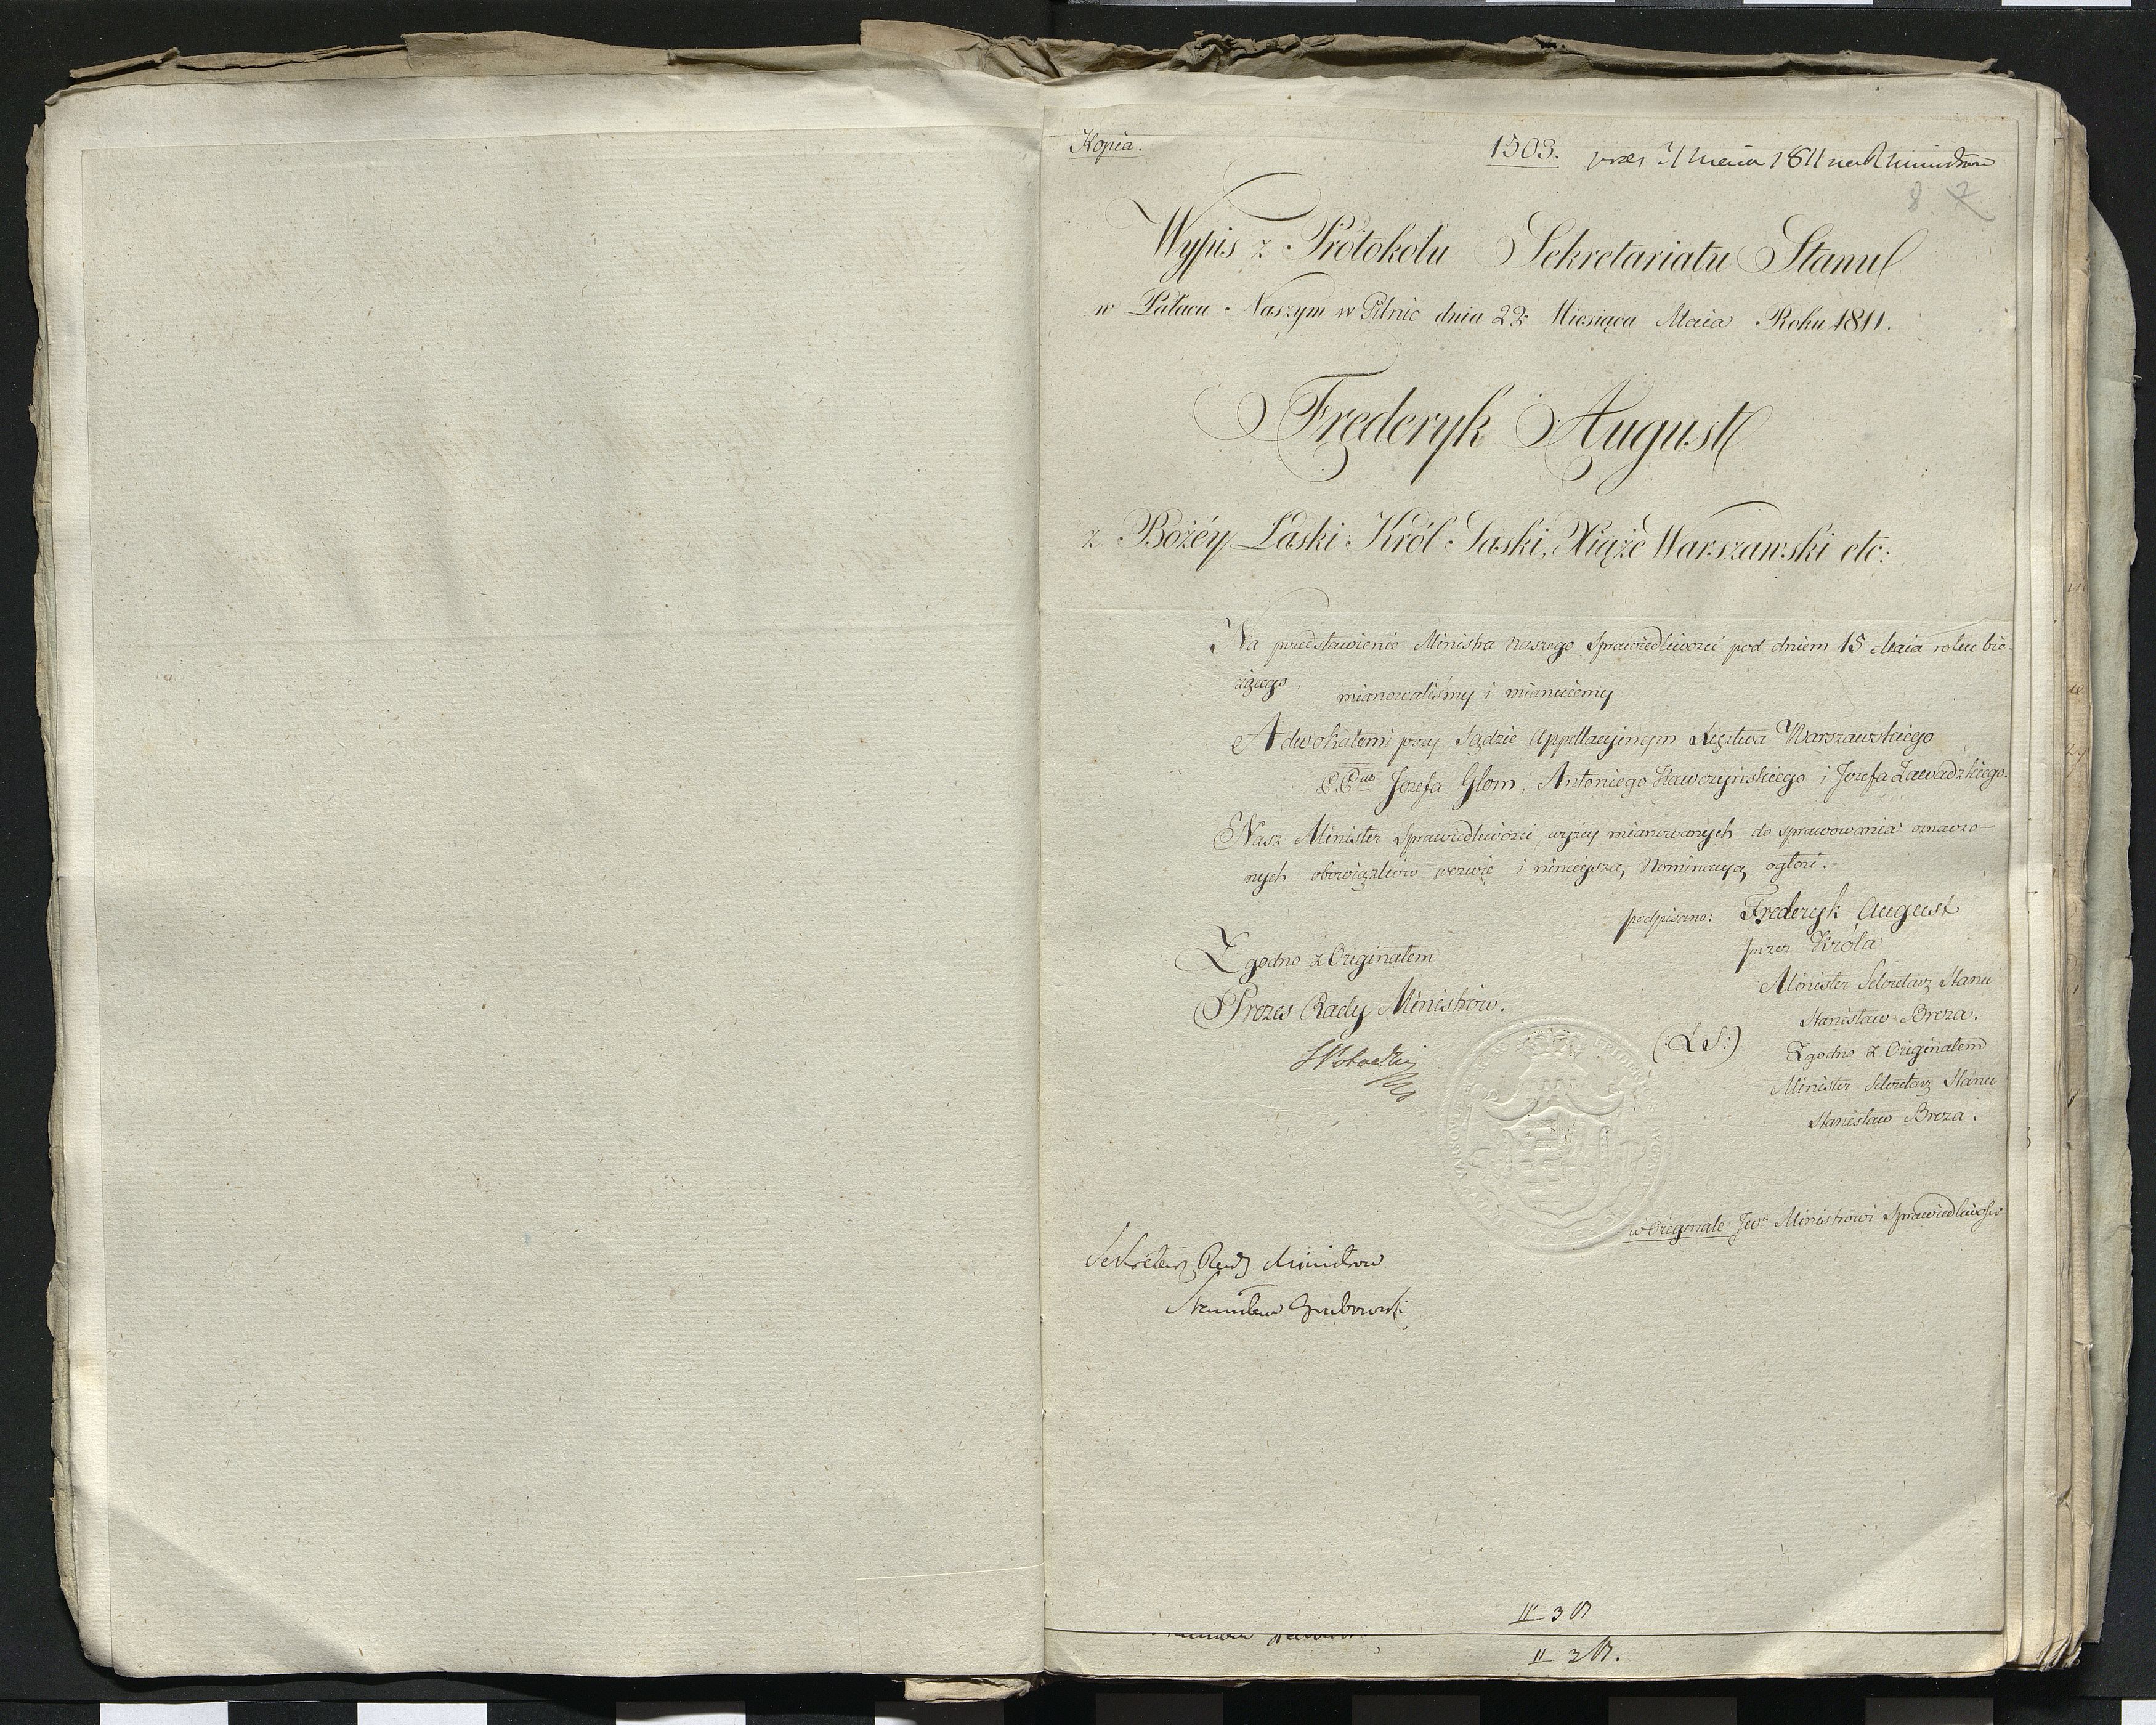 Kopia.
1503. prez 31 Maia 1811 na R Ministrów
8 2
Wypis z Protokołu Sekretariatu Stanu
w Pałacu Naszym w Pilnic dnia 22 Miesiąca Maia Roku 1811.
Frederyk August
z Bożéy Łaski Król Saski, Xiąże Warszawski etc:
Na przedstawienie Ministra naszego Sprawiedliwości pod dniem 15 Maia roku bie-
żącego, mianowaliśmy i mianuiemy
Adwokatemi przy Sądzie Appellacyinym Xięztwa Warszawskiego
Jozefa Glom, Antoniego Kawczyńskiego i Jozefa Zawadzkiego.
Nasz Minister Sprawiedliwości wyżey mianowanych do sprawowania oznaczo-
nych obowiązków wezwie i ninieyszą Nominacyą ogłosi.
podpisano: Frederyk August
przez Króla
Minister Sekretarz Stanu
Stanisław Breza.
(:L.S:)
Zgodno z Originałem
Minister Sekretarz Stanu
Stanisław Breza.
Zgodno z Originałem
Prezes Rady Ministrów.
SPotocki
w Originale Jwu Ministrowi Sprawiedliwości
Sekretarz Rady Ministrow
Stanisław Grabowski
II 3
II 2